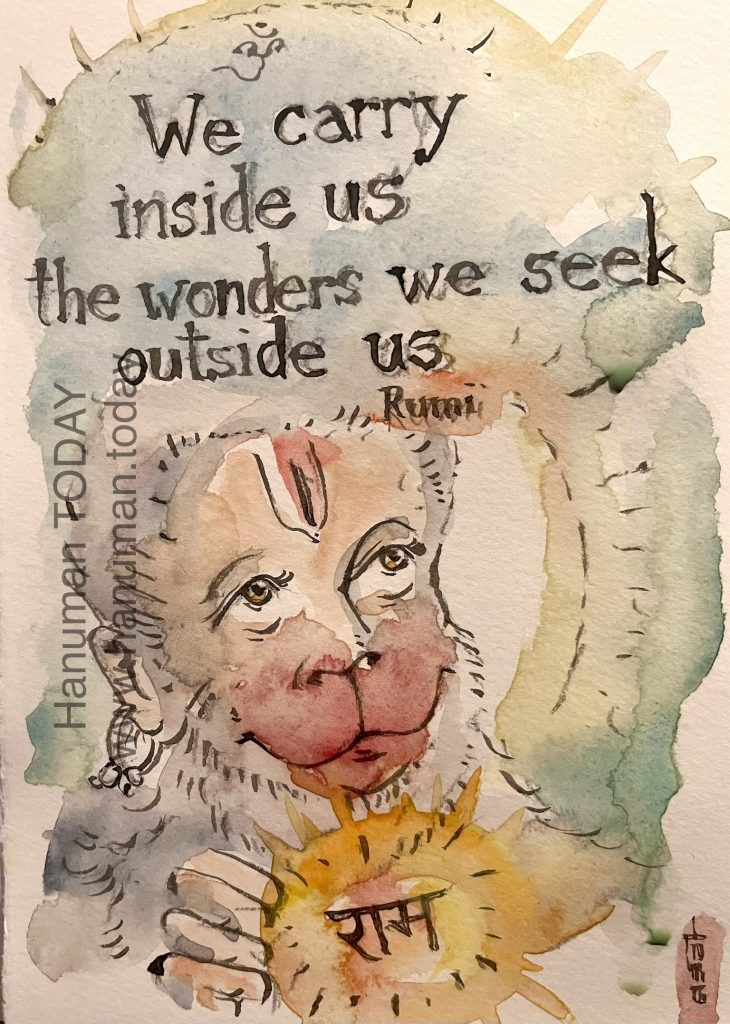 ॐ
We carry
inside us
the wonders we seek
outside us
Rumi
Hanuman TODAY
www.hanuman.today
राम